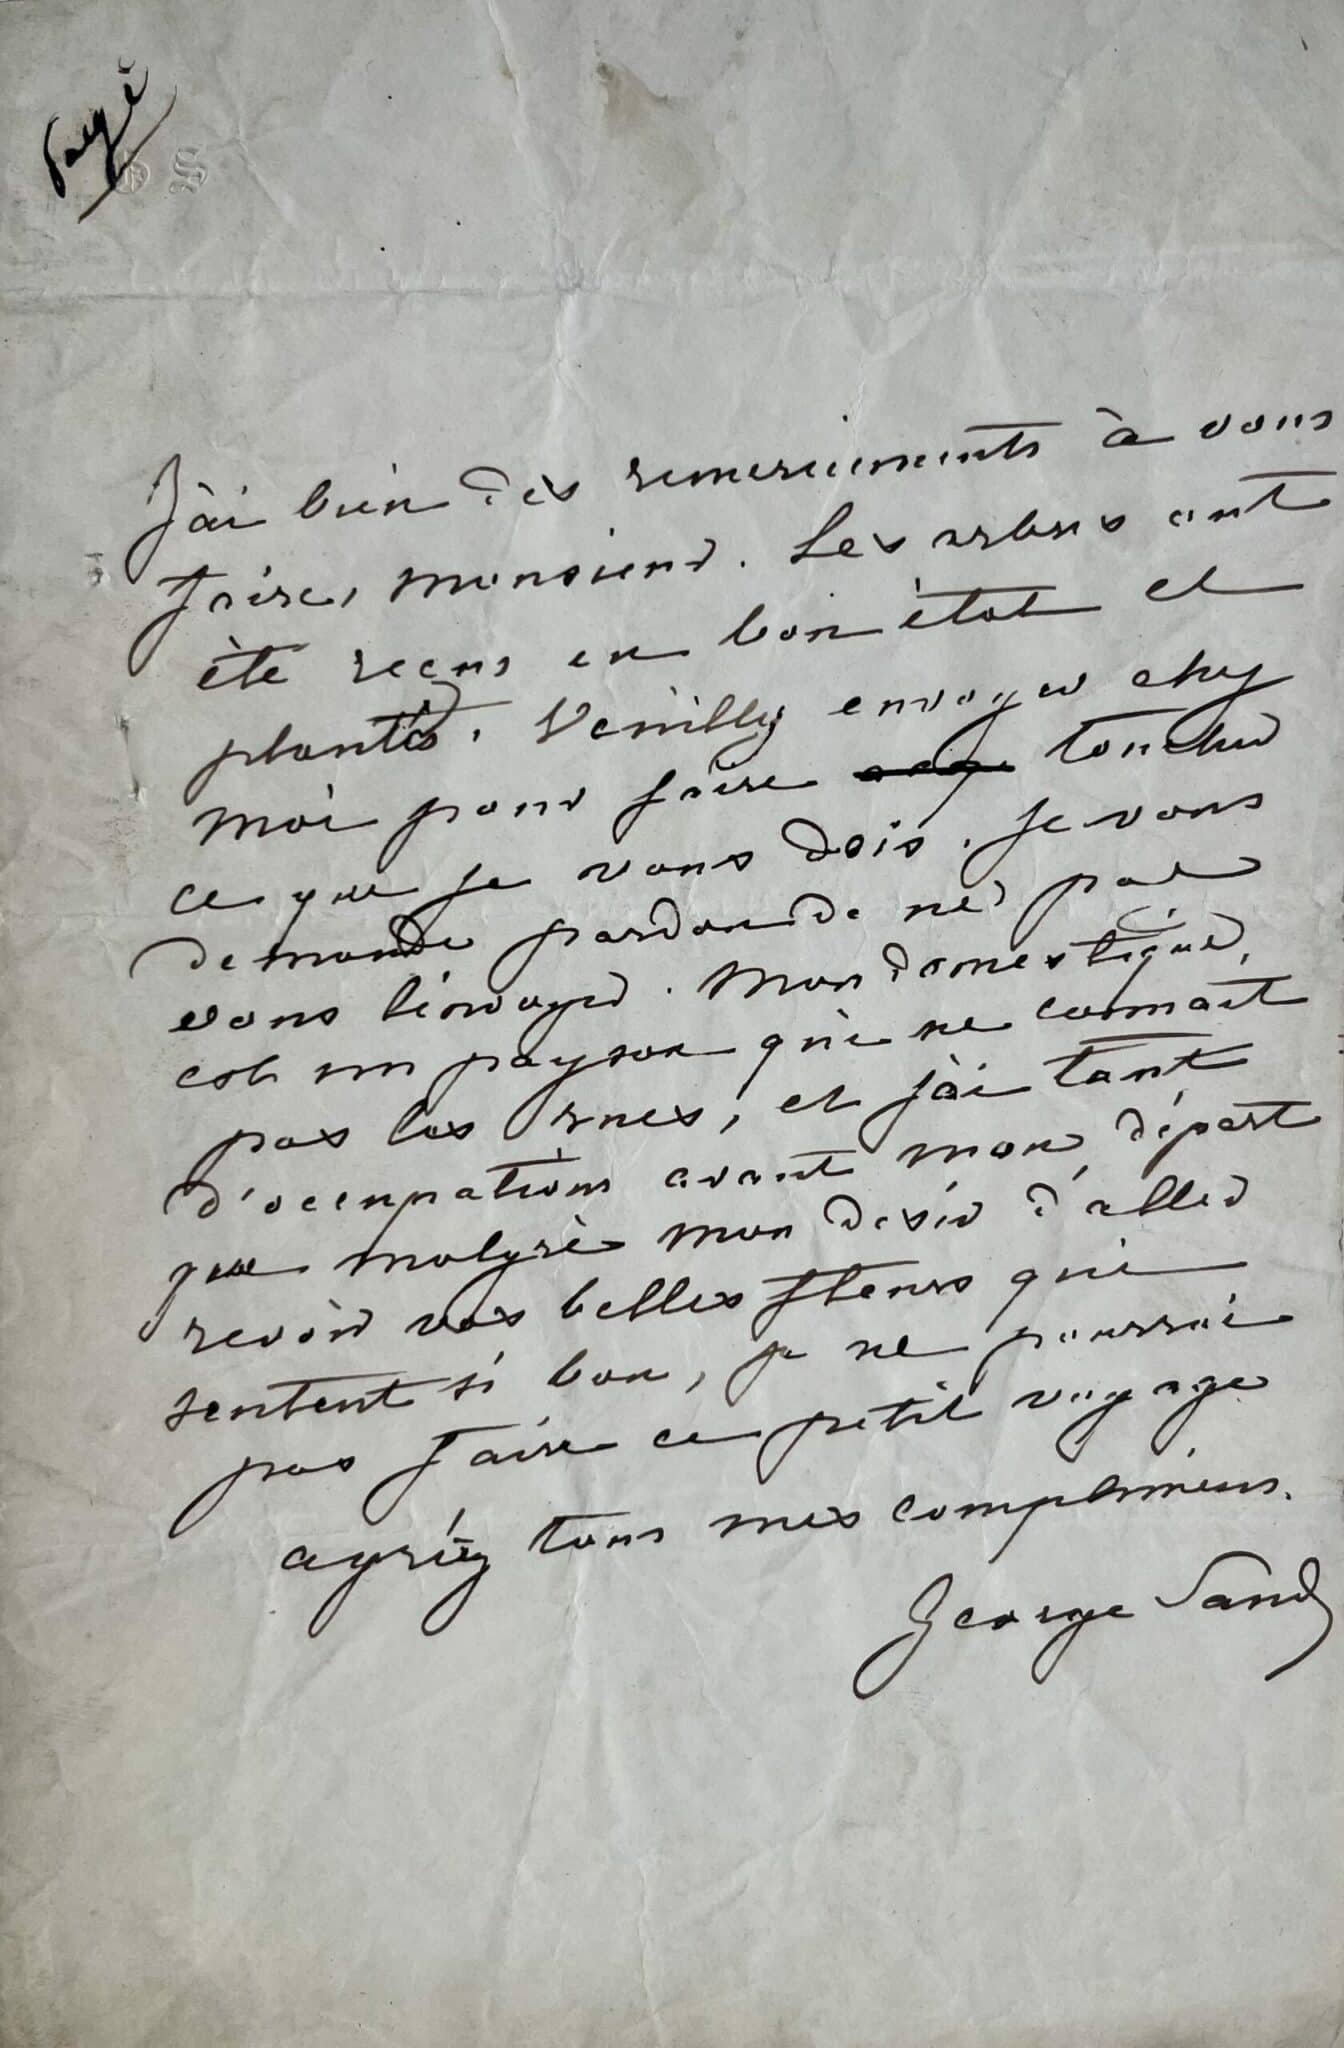 Payé
G S
J'ai bien des remerciements à vous
faire, monsieur. Les arbres ont
été reçus en bon état et
plantés. Veuillez envoyer chez
moi pour faire toucher
ce que je vous dois. Je vous
demande pardon de ne pas
vous l'envoyer. Mon domestique
est un paysan qui ne connait
pas les rues, et j'ai tant
d'occupations avant mon départ
que malgré mon désir d'aller
revoir vos belles fleurs qui
sentent si bon, je ne pourrai
pas faire ce petit voyage
agréez tous mes complimens.
George Sand